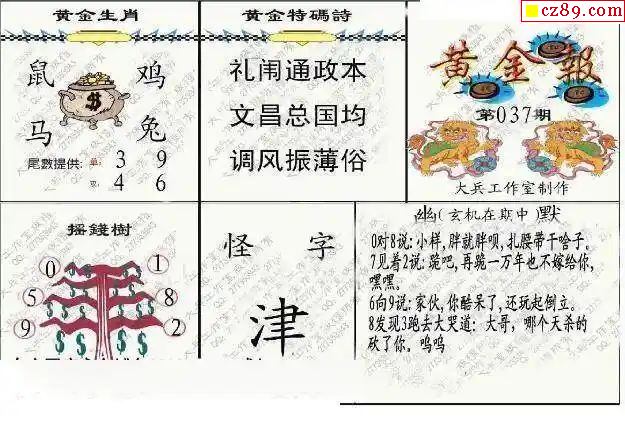 cz89.com
黄金生肖
鼠 鸡
马 兔
尾數提供: 单: 3 9
双: 4 6
黄金特碼詩
礼闹通政本
文昌总国均
调风振薄俗
黄金報
第037期
大兵工作室制作
摇錢樹
0 1
5 8
9 2
$ $ $ $ $ $
怪 字
津
幽(玄机在期中)默
0对8说:小样,胖就胖呗,扎腰带干啥子。
7见着2说:跪吧,再跪一万年也不嫁给你,
嘿嘿。
6向9说:家伙,你酷呆了,还玩起倒立。
8发现3跑去大哭道: 大哥, 哪个天杀的
砍了你。呜呜